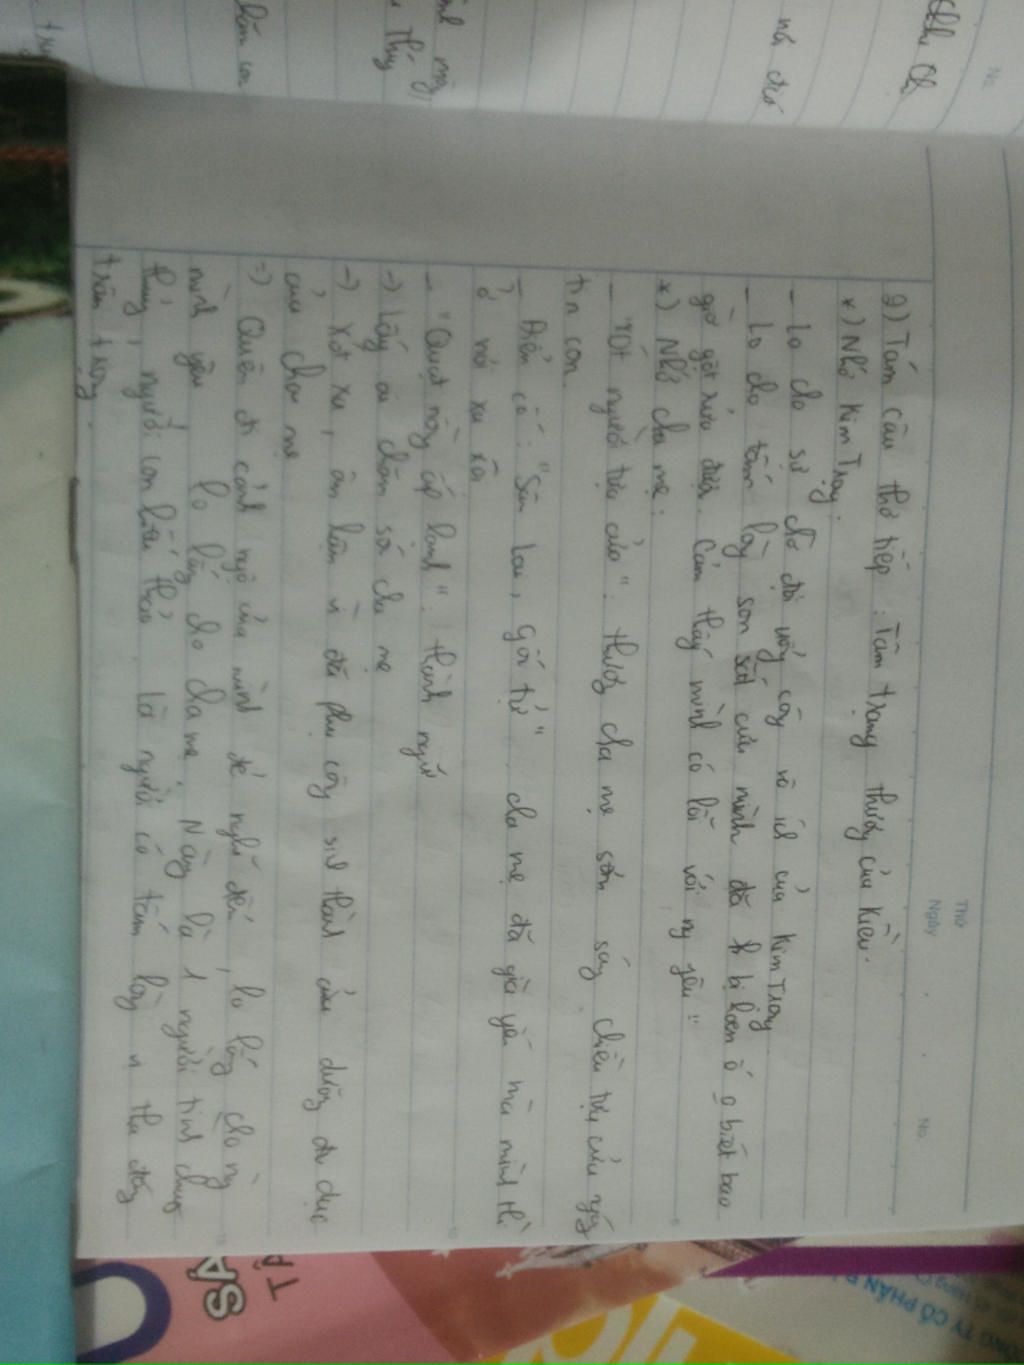 Thứ
Ngày
No.
2) Tám câu thơ tiếp: Tâm trạng thương của Kiều.
*) Nhớ Kim Trọng:
- Lo cho sự chờ đợi uổng công vô ích của Kim Trọng
- Lo cho tấm lòng son sắt của mình đã bị hoen ố o biết bao
giờ gột rửa được. Cảm thấy mình có lỗi với ng yêu"
*) Nhớ cha mẹ:
- "Xót người tựa cửa": thương cha mẹ sớm sáng chiều tựa cửa
tin con.
- Điển cố: "Sân Lai, gốc tử" cha mẹ đã già yếu mà mình thì
ở nơi xa xôi
- "Quạt nồng ấp lạnh": thành ngữ
-> Lấy ai chăm sóc cha mẹ
-> Xót xa, ân hận vì đã phụ công sinh thành của dưỡng dục
của cha mẹ
=> Quên đi cảnh ngộ của mình để nghĩ đến, lo lắng cho ng
mình yêu lo lắng cho cha mẹ. Nàng là 1 người tình chung
thủy, người con hiếu thảo là người có tấm lòng vị tha đáng
trân trọng.
SA
TẬ
CÔNG TY CỔ PHẦN